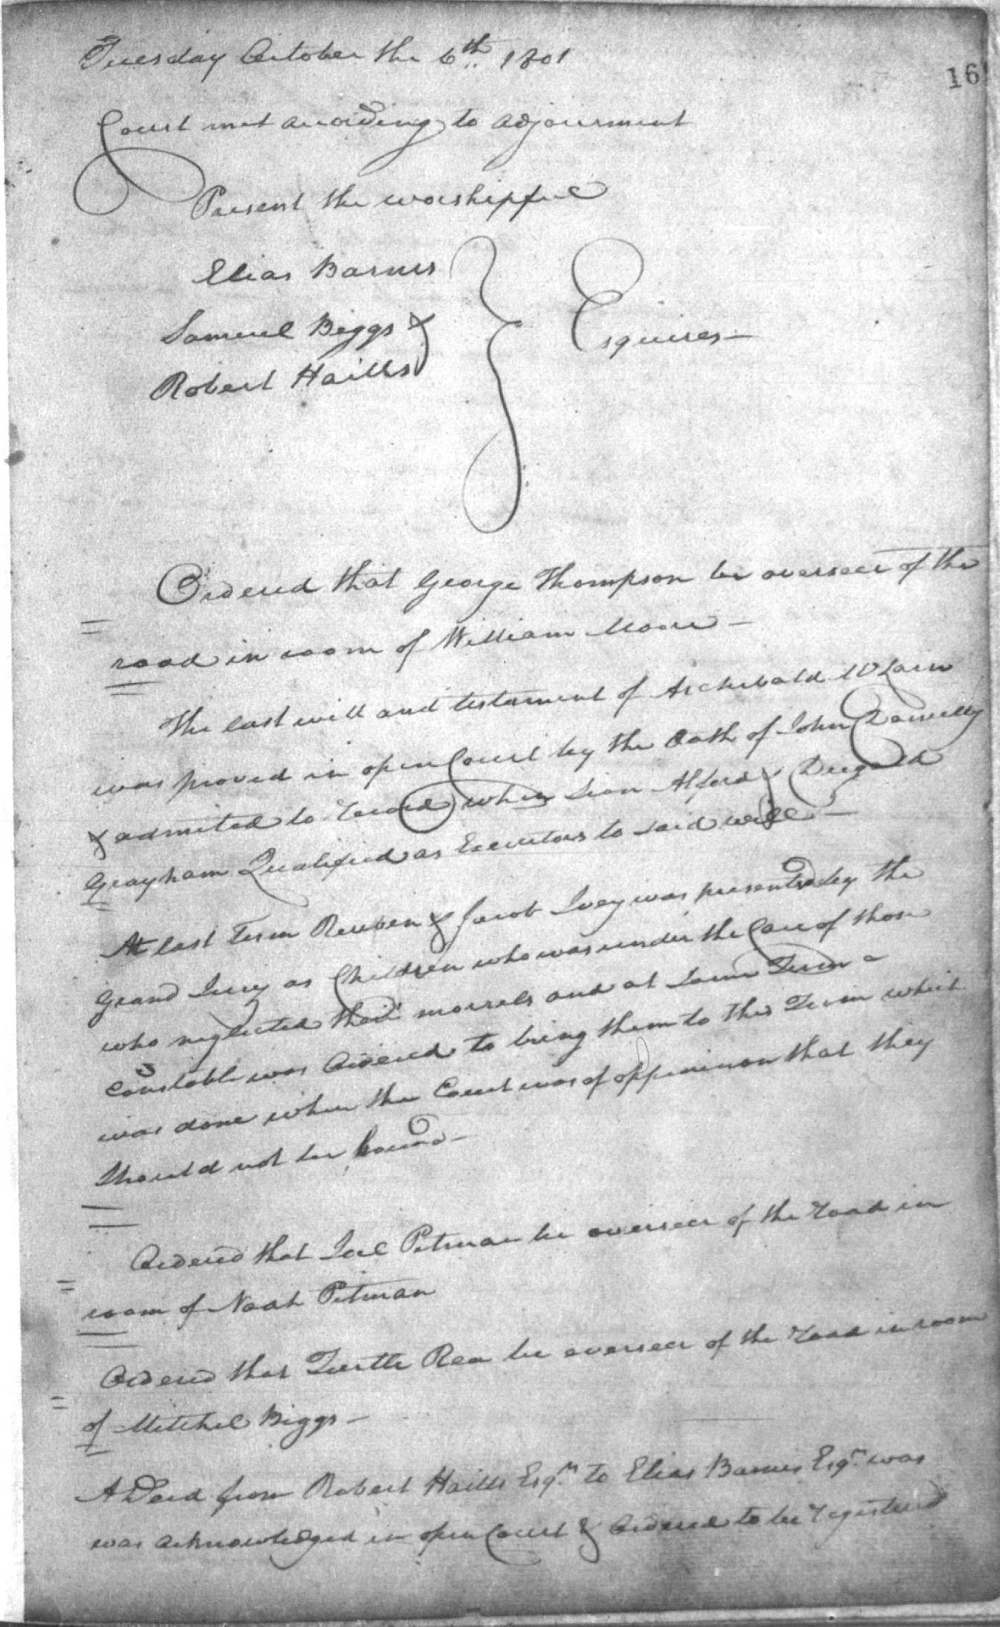 Tuesday October the 6th 1801
16
Court met according to adjournment
Present the worshipfull
Elias Barnes
Samuel Biggs &
Robert Hails
Esquires —
Ordered that George Thompson be overseer of the
road in room of William Moore —
The last will and testament of Archibald McLain
was proved in open Court by the Oath of John Donnelly
& admited to record when Sion Alford & Dugald
Grayham Qualified as Executors to said will —
At last Term Reuben & Jacob Ivey was presented by the
Grand Jury as Children who was under the Care of those
who neglected their morrels and at same Term a
Constable was Ordered to bring them to this Term which
was done when the Court was of oppininon that they
Should not be bound —
Ordered that Joel Pitman be overseer of the road in
room of Noah Pitman
Ordered that Tuttle Rea be overseer of the road in room
of Mitchel Biggs —
A Deed from Robert Hails Esqr. to Elias Barnes Esqr. was
was acknowledged in open Court & Ordered to be registered